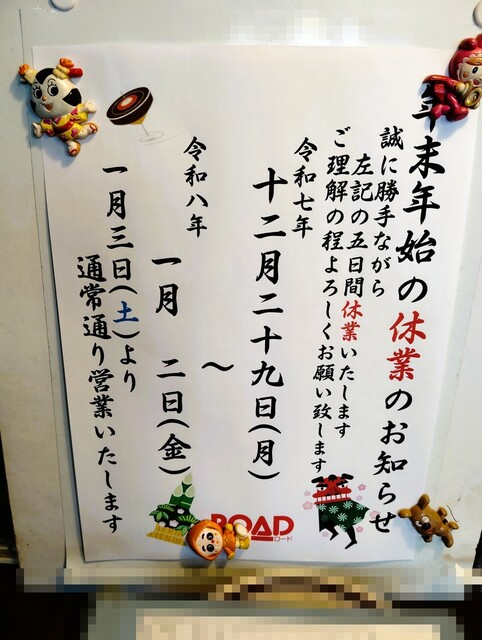 年末年始の休業のお知らせ
誠に勝手ながら
左記の五日間休業いたします
ご理解の程よろしくお願い致します
令和七年
十二月二十九日(月)
〜
令和八年
一月 二日(金)
一月三日(土)より
通常通り営業いたします
ROAD
ロード